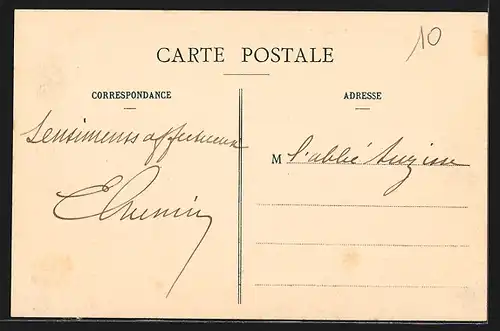 10
CARTE POSTALE
CORRESPONDANCE
ADRESSE
Sentiments affectueux
M l'abbé